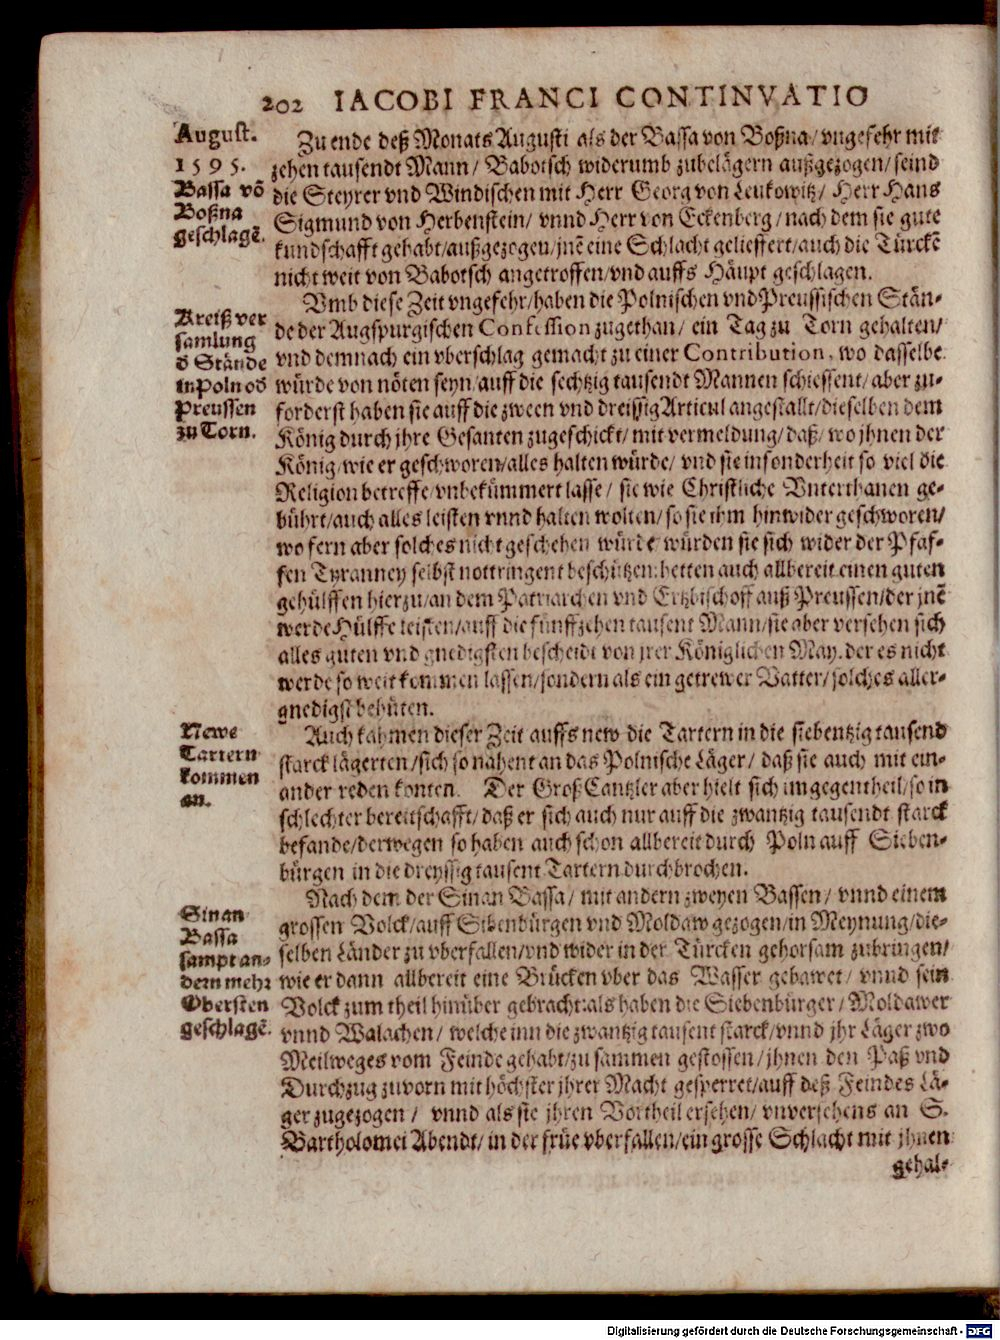 202 IACOBI FRANCI CONTINVATIO
August.
1595.
Bassa võ
Boßna
geschlagẽ.
Zu ende deß Monats Augusti als der Bassa von Boßna/ vngefehr mit
zehen tausendt Mann/ Babotsch widerumb zubelägern außgezogen/ seind
die Steyrer vnd Windischen mit Herr Georg von Leukowitz/ Herr Hans
Sigmund von Herbenstein/ vnnd Herr von Eckenberg/ nach dem sie gute
kundschafft gehabt/ außgezogen/ jnẽ eine Schlacht gelieffert/ auch die Türckẽ
nicht weit von Babotsch angetroffen/ vnd auffs Häupt geschlagen.
Kreiß ver
samlung
d̃ Stände
in Poln vñ
Preussen
zu Torn.
Vmb diese Zeit vngefehr/ haben die Polnischen vnd Preussischen Stän-
de der Augspurgischen Confession zugethan/ ein Tag zu Torn gehalten/
vnd demnach ein vberschlag gemacht zu einer Contribution, wo dasselbe
würde von nöten seyn/ auff die sechtzig tausendt Mannen schiessent/ aber zu-
forderst haben sie auff die zween vnd dreissig Articul angestallt/ dieselben dem
König durch jhre Gesanten zugeschickt/ mit vermeldung/ daß/ wo jhnen der
König/ wie er geschworen/ alles halten würde/ vnd sie insonderheit so viel die
Religion betreffe/ vnbekümmert lasse/ sie wie Christliche Vnterthanen ge-
bührt/ auch alles leisten vnnd halten wolten/ so sie ihm hinwider geschworen/
wo fern aber solches nicht geschehen würde/ würden sie sich wider der Pfaf-
fen Tyranney selbst nottringent beschützen: hetten auch allbereit einen guten
gehülffen hierzu/ an dem Patriarchen vnd Ertzbischoff auß Preussen/ der jnẽ
werde Hülffe leisten/ auff die funffzehen tausent Mann/ sie aber versehen sich
alles guten vnd gnedigsten bescheidt von jrer Königlichen May. der es nicht
werde so weit kommen lassen/ sondern als ein getrewer Vatter/ solches aller-
gnedigst behüten.
Newe
Tartern
kommen
an.
Auch kahmen dieser Zeit auffs new die Tartern in die siebentzig tausend
starck lägerten/ sich so nahent an das Polnische Läger/ daß sie auch mit ein-
ander reden konten. Der Groß Cantzler aber hielt sich im gegentheil/ so in
schlechter bereitschafft/ daß er sich auch nur auff die zwantzig tausendt starck
befande/ derwegen so haben auch schon allbereit durch Poln auff Sieben-
bürgen in die dreyssig tausent Tartern durchbrochen.
Sinan
Bassa
sampt an-
dern mehr
Obersten
geschlagẽ.
Nach dem der Sinan Bassa/ mit andern zweyen Bassen/ vnnd einem
grossen Volck/ auff Sibenbürgen vnd Moldaw gezogen/ in Meynung/ die-
selben Länder zu vberfallen/ vnd wider in der Türcken gehorsam zubringen/
wie er dann allbereit eine Brücken vber das Wasser gebawet/ vnnd sein
Volck zum theil hinüber gebracht: als haben die Siebenbürger/ Moldawer
vnnd Walachen/ welche inn die zwantzig tausent starck/ vnnd jhr Läger zwo
Meilweges vom Feinde gehabt/ zu sammen gestossen/ jhnen den Paß vnd
Durchzug zuvorn mit höchster jhrer Macht gesperret/ auff deß Feindes Lä-
ger zugezogen/ vnnd als sie jhren Vortheil ersehen/ vnversehens an S.
Bartholomei Abendt/ in der früe vberfallen/ ein grosse Schlacht mit jhnen
gehal-
Digitalisierung gefördert durch die Deutsche Forschungsgemeinschaft - DFG